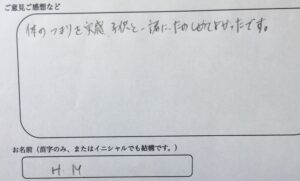 ご意見ご感想など
体のつまりを実感 子供と一諸に、ためせてよかったです。
お名前（苗字のみ、またはイニシャルでも結構です。）
H M